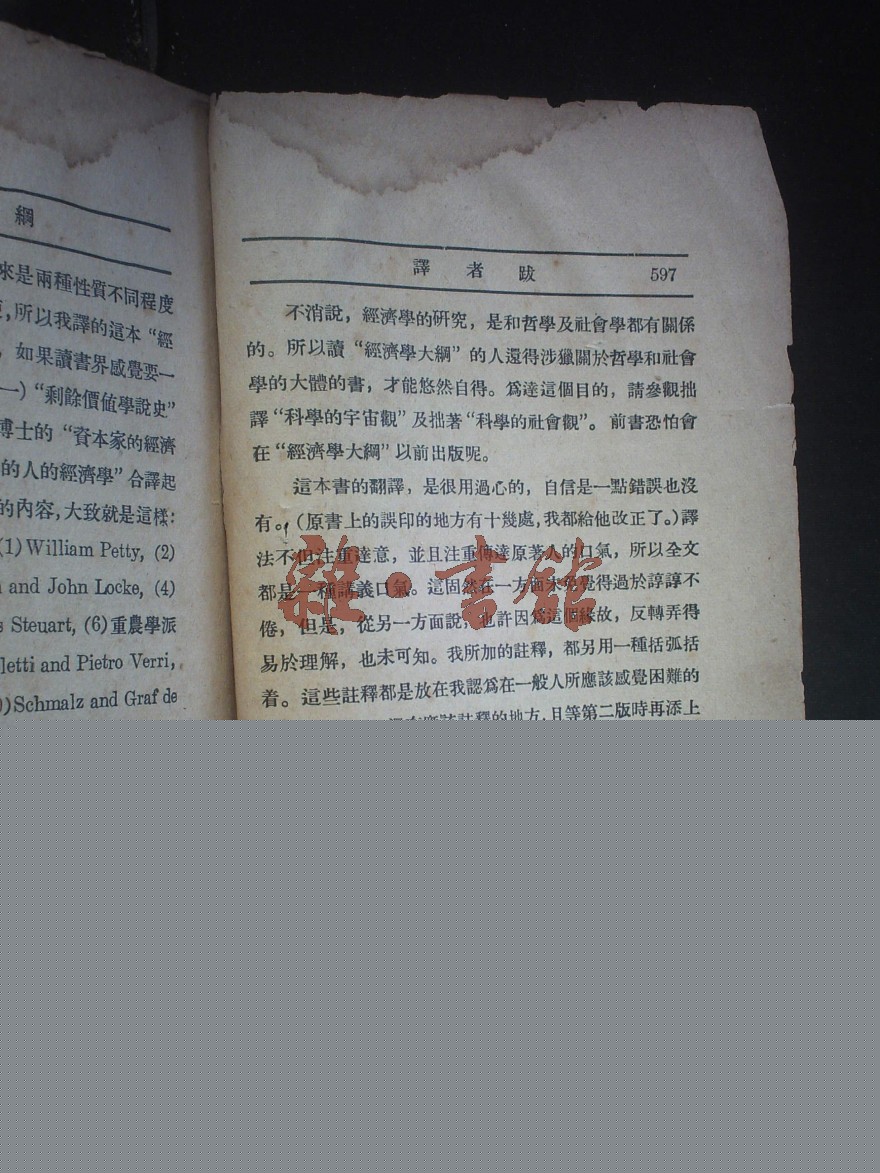 綱
來是兩種性質不同程度
,所以我譯的這本“經
,如果讀書界感覺要一
一)“剩餘價值學說史”
博士的“資本家的經濟
的人的經濟學”合譯起
的內容,大致就是這樣:
(1)William Petty, (2)
and John Locke, (4)
s Steuart, (6)重農學派
letti and Pietro Verri,
)Schmalz and Graf de
譯者跋 597
不消說,經濟學的研究,是和哲學及社會學都有關係
的。所以讀“經濟學大綱”的人還得涉獵關於哲學和社會
學的大體的書,才能悠然自得。爲達這個目的,請參觀拙
譯“科學的宇宙觀”及拙著“科學的社會觀”。前書恐怕會
在“經濟學大綱”以前出版呢。
這本書的翻譯,是很用過心的,自信是一點錯誤也沒
有。(原書上的誤印的地方有十幾處,我都給他改正了。)譯
法不但注重達意,並且注重傳達原著人的口氣,所以全文
都是一種講義口氣。這固然在一方面未免覺得過於諄諄不
倦,但是,從另一方面說,也許因爲這個緣故,反轉弄得
易於理解,也未可知。我所加的註釋,都另用一種括弧括
着。這些註釋都是放在我認爲在一般人所應該感覺困難的
應該註釋的地方,且等第二版時再添上
雜·書館